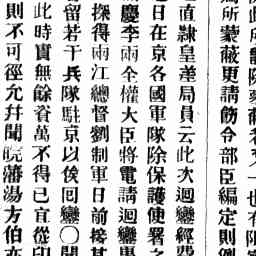 爲所蒙蔽更請飭令部臣編定則例
也直隷皇差局員云此次迴鑾經費
也日在京各國軍隊除保護使署之
慶李兩全權大臣將電請迴鑾事
探得兩江總督劉制軍日前接其
留若干兵隊駐京以俟囘鑾〇聞
此時實無餘資萬不得已宜從印
則不可徑允幷聞皖藩湯方伯亦